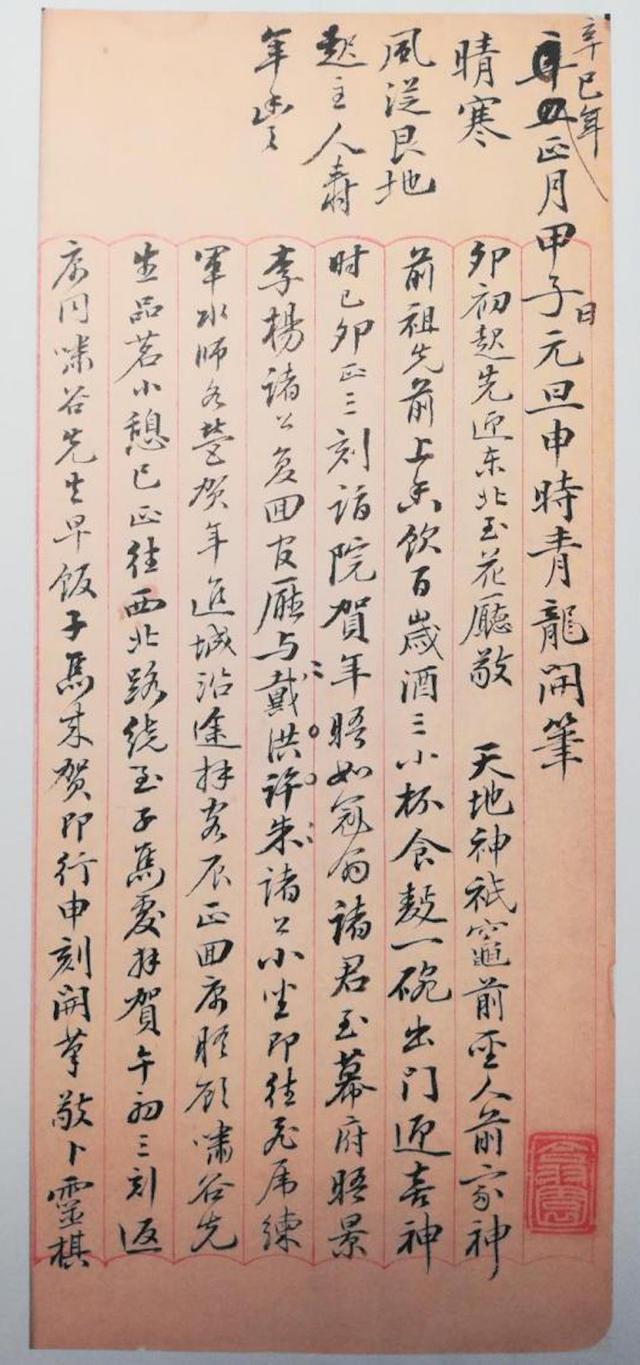 辛巳年
正月甲子日元旦申時青龍開筆
晴寒
風從艮地
起主人壽
年豐
卯初起先迎东北至花廳敬 天地神祇竈前聖人前家神
前祖先前上香飲百歲酒三小杯食麪一碗出門迎喜神
时已卯正三刻詣院賀年晤如冠翁諸君至幕府晤景
李楊諸公复回官廳与戴洪许朱諸公小坐即往虎席練
軍水师各营贺年進城沿途拜客辰正回寓賍顾嘯谷先
生品茗小憩巳正往西北路绕至子馬處拜賀午初三刻返
寓同嘯谷先生早饭子馬来贺即行申刻開筆敬卜靈棋